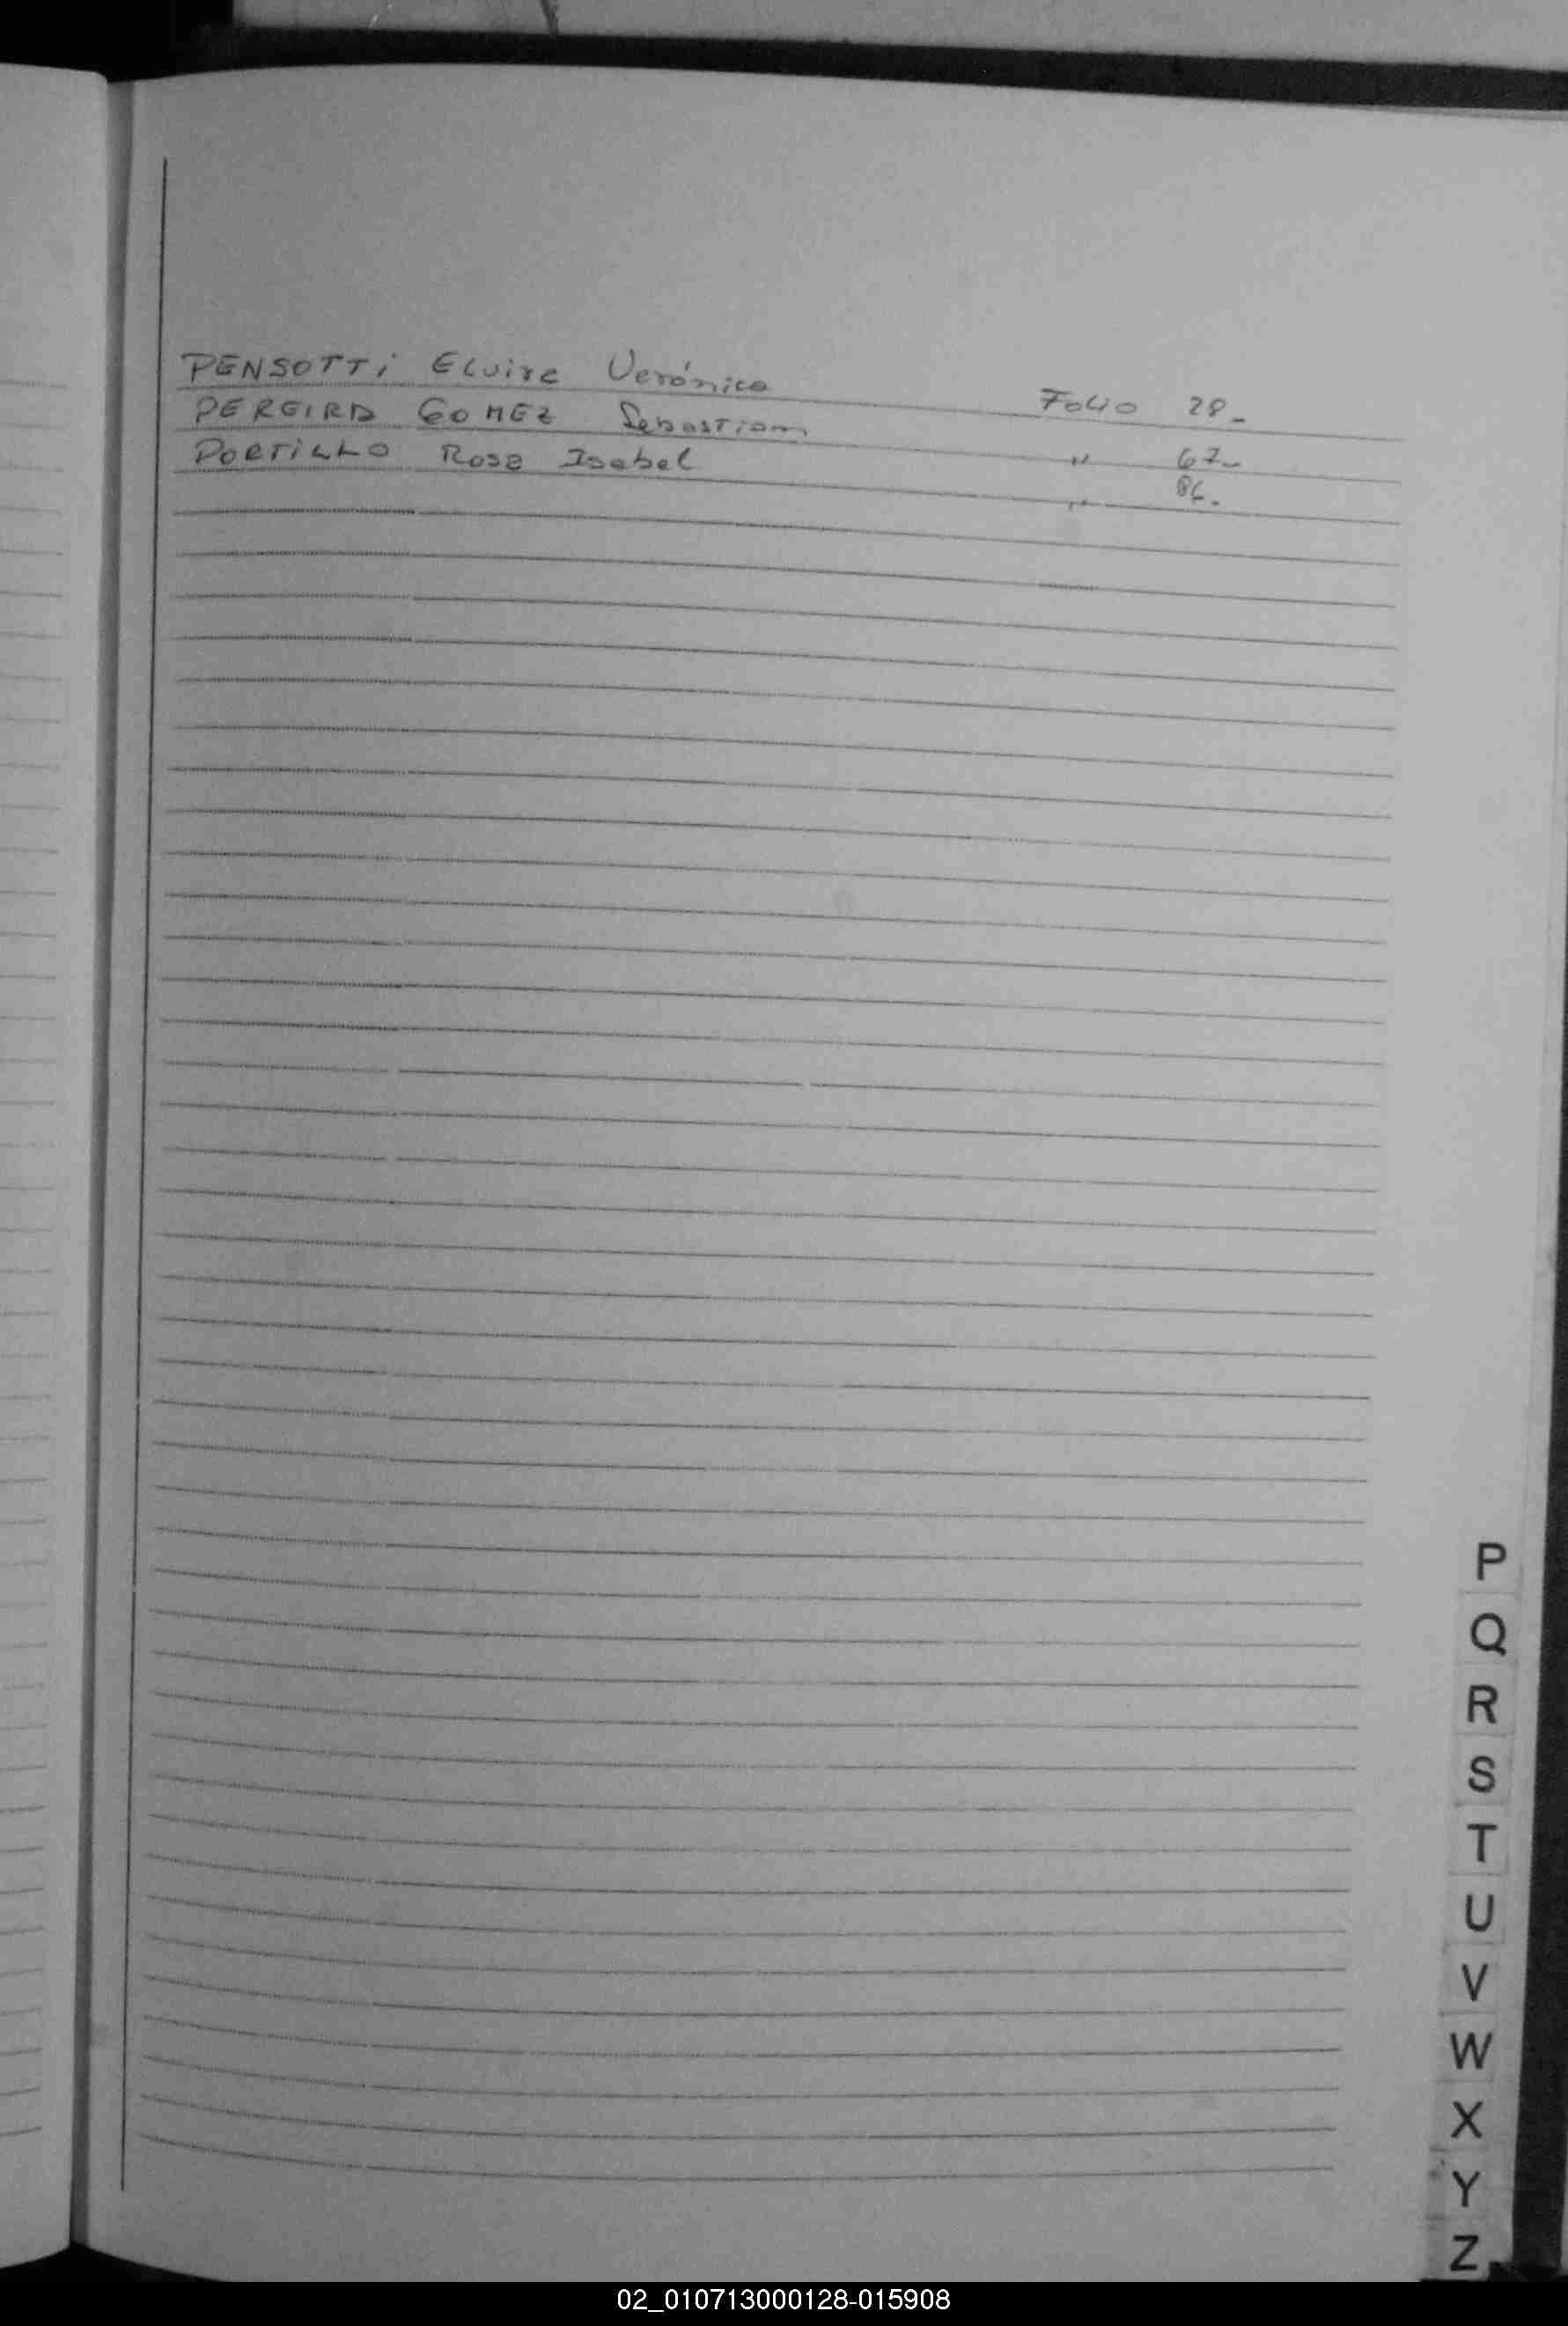 PENSOTTi Elvira Verónica Folio 28_
PEREIRA GOMEZ Sebastian " 67_
PORTiLLO Rosa Isabel " 86_
P
Q
R
S
T
U
V
W
X
Y
Z
02_010713000128-015908